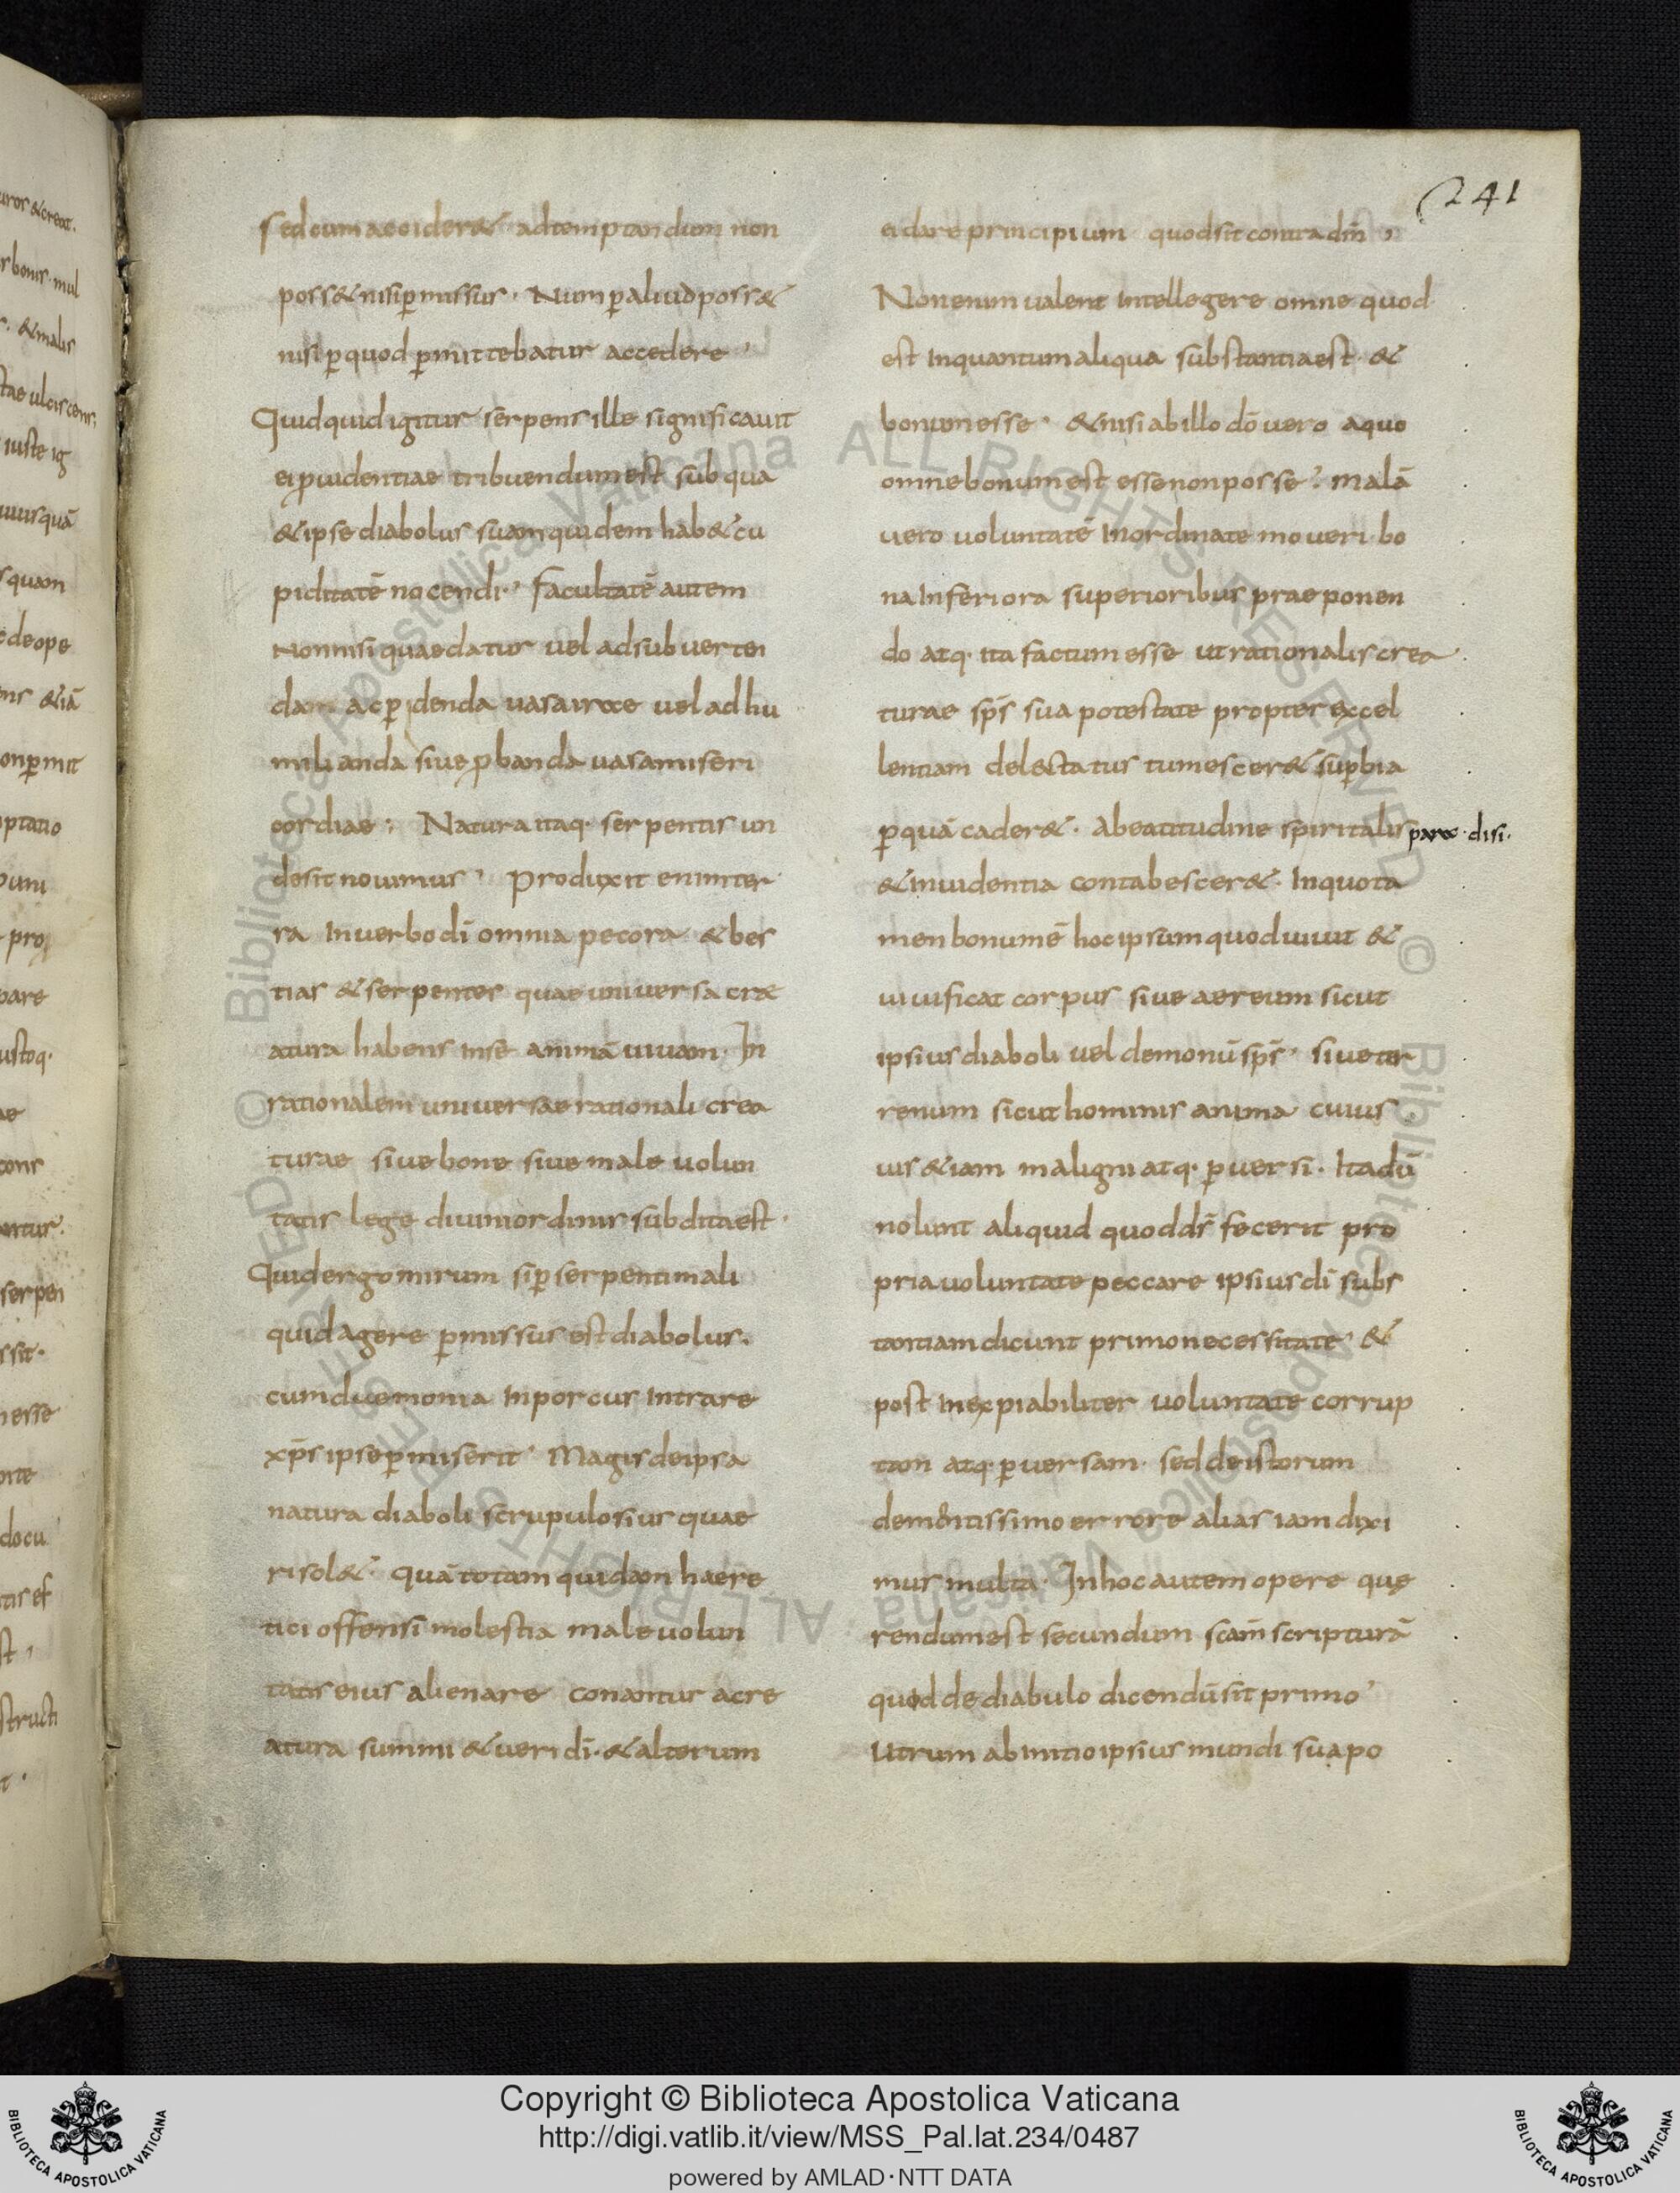 241
sed cum accideret ad temptandum non
poss& nisi p̄missus· Num p̄ aliud poss&
nisi p̄ quod p̄mittebatur accedere·
Quidquid igitur serpens ille significauit
ei ꝓuidentiae tribuendum est sub qua
& ipse diabolus suam quidem hab& cu
piditatē nocendi·' facultatē autem
Non nisi quae datur uel ad subuerten
dam ac p̄denda uasa irae uel ad hu
milianda siue ꝓbanda uasa miseri
cordiae; Natura itaq· serpentis un
de sit nouimus' Produxit enim ter
ra In uerbo dī omnia pecora & bes
tias & serpentes quae uniuersa cre
atura habens in se animā uiuam· In
rationalem uniuersae rationali crea
turae siue bone siue male volun
tatis lege diuini ordinis subdita est·
Quid ergo mirum si p̄ serpenti mali
quid agere p̄missus est diabolus·
cum duemonia In porcus Intrare
xp̄s ipse p̄miserit' Magis de ipsa
natura diaboli scrupulosius quae
ri sol&· quā totam quidam haere
tici offensi molestia male uolun
tatis eius alienare conantur acre
atura summi & ueri dī· & alterum
ei dare principium quod sit contra dm̄·
Non enim ualent Intellegere omne quod
est Inquantum aliqua substantia est· &
bonum esse· & nisi ab illo dō uero a quo
omne bonum est esse non posse·' malā
uero uoluntatē Inordinate moueri· bo
na Inferiora superioribus praeponen
do atq· ita factum esse ut rationalis crea
turae sp̄s sua potestate propter excel
lentiam delectatus tumescer& sup̄bia
p̄ quā cader&· A beatitudine spiritalis parae·disi·
& inuidentia contabescer&· In quo ta
men bonum ē hoc ipsum quod uiuit &
uiuificat corpus siue aereum sicut
ipsius diaboli uel demonū sp̄s· siue ter
renum sicut hominis anima cuius
uis &iam maligni atq· p̄uersi· Ita dū
nolunt aliquid quod dr̄ fecerit pro
pria uoluntate peccare ipsius dī subs
tantiam dicunt primo necessitate &
post inexpiabiliter uoluntate corrup
tam atq· p̄uersam· sed de istorum
dementissimo errore alias iam dixi
mus multa· In hoc autem opere quę
rendum est secundum scam̄ scripturā
quod de diabulo dicendū sit primo'
Utrum ab initio ipsius mundi sua po
© Biblioteca Apostolica Vaticana ALL RIGHTS RESERVED © Biblioteca Apostolica Vaticana ALL RIGHTS RESERVED
Copyright © Biblioteca Apostolica Vaticana
http://digi.vatlib.it/view/MSS_Pal.lat.234/0487
powered by AMLAD·NTT DATA
BIBLIOTECA APOSTOLICA VATICANA
BIBLIOTECA APOSTOLICA VATICANA